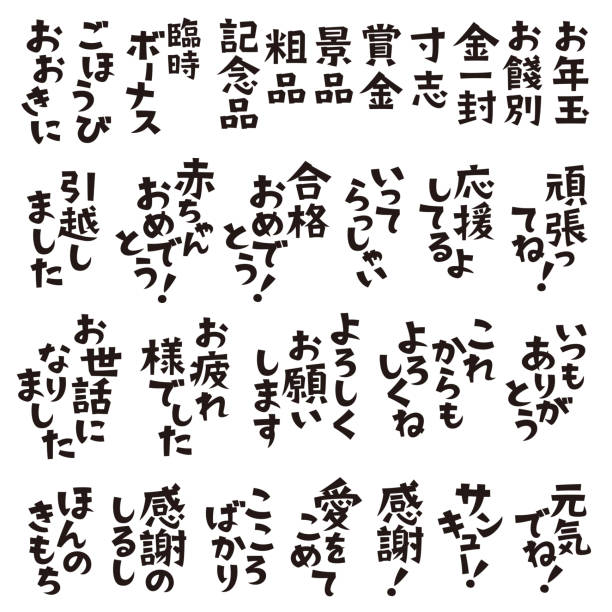 お年玉
お餞別
金一封
寸志
賞金
景品
粗品
記念品
臨時
ボーナス
ごほうび
おおきに
頑張っ
てね!
応援
してるよ
いって
らっしゃい
合格
おめで
とう!
赤ちゃん
おめで
とう!
引越し
ました
いつも
ありが
とう
これ
からも
よろ
しくね
よろしく
お願い
します
お疲れ
様でした
お世話に
なり
ました
元気
でね!
サン
キュー!
感謝!
愛を
こめて
こころ
ばかり
感謝の
しるし
ほんの
きもち